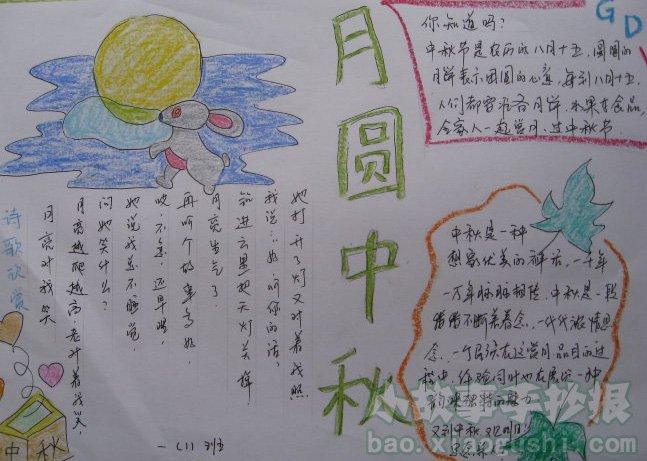 月圆中秋
GD
你知道吗?
中秋节是农历的八月十五,圆圆的
月饼表示团圆的心意,每到八月十五,
人们都要准备月饼、水果食品,
全家人一起赏月,过中秋节.
诗歌欣赏
月亮对我笑
月亮越爬越高,老对着我笑,
问她笑什么?
她说我总不睡觉,
哎,不急,还早哩,
再听个故事多好,
月亮生气了,
钻进云里把天灯关掉
我说:"好,听你的话,
她打开了灯又对着我照
中秋是一种
想家优美的神话,一千年
一万年脉脉相传,中秋是一段
不断
一代代
念,一个民族在这赏月品月的过
程中,体验同时也在展示一种
的魅力
又到中秋
一(1)班
中秋
小故事手抄报
bao.xiaogushi.com